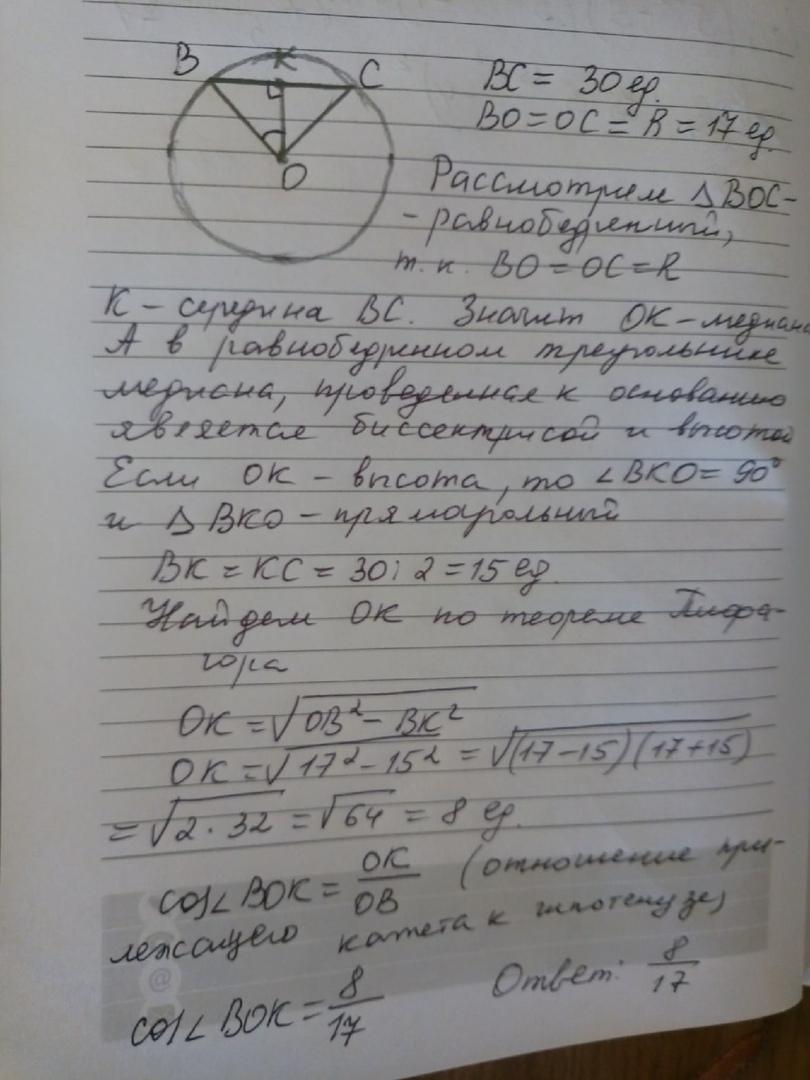 В К С
О
BC = 30 ед.
BO = OC = R = 17 ед.
Рассмотрим △BOC -
- равнобедренный,
т.к. BO = OC = R
К - середина BC. Значит OK - медиана
А в равнобедренном треугольнике
медиана, проведенная к основанию
является биссектрисой и высотой
Если OK - высота, то ∠BKO = 90°
и △BKO - прямоугольный
BK = KC = 30 : 2 = 15 ед.
Найдем OK по теореме Пифа-
гора
OK = √(OB² - BK²)
OK = √(17² - 15²) = √((17-15)(17+15))
= √(2·32) = √64 = 8 ед.
cos∠BOK = OK/OB (отношение при-
лежащего катета к гипотенузе)
cos∠BOK = 8/17 Ответ: 8/17